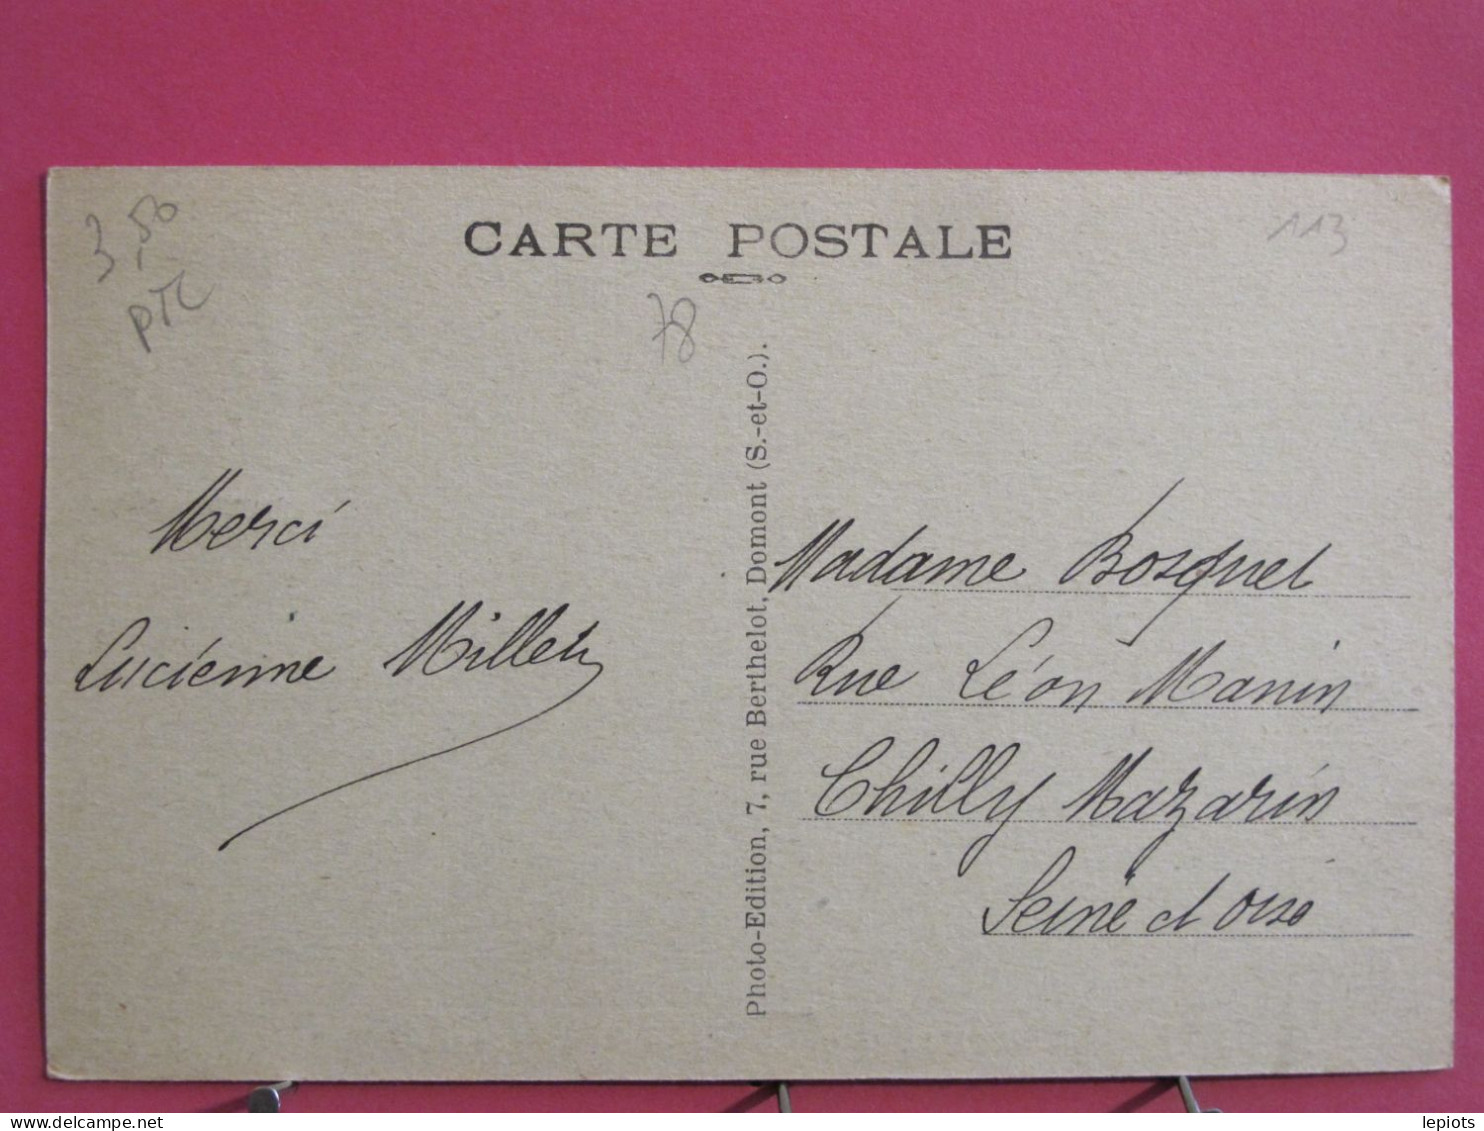 CARTE POSTALE
3,50
PTC
113
78
Merci
Lucienne Millet
Photo-Edition, 7, rue Berthelot, Domont (S.-et-O.).
Madame Bosquet
Rue Léon Manin
Chilly Mazarin
Seine et Oise
delcampe.net
lepiots